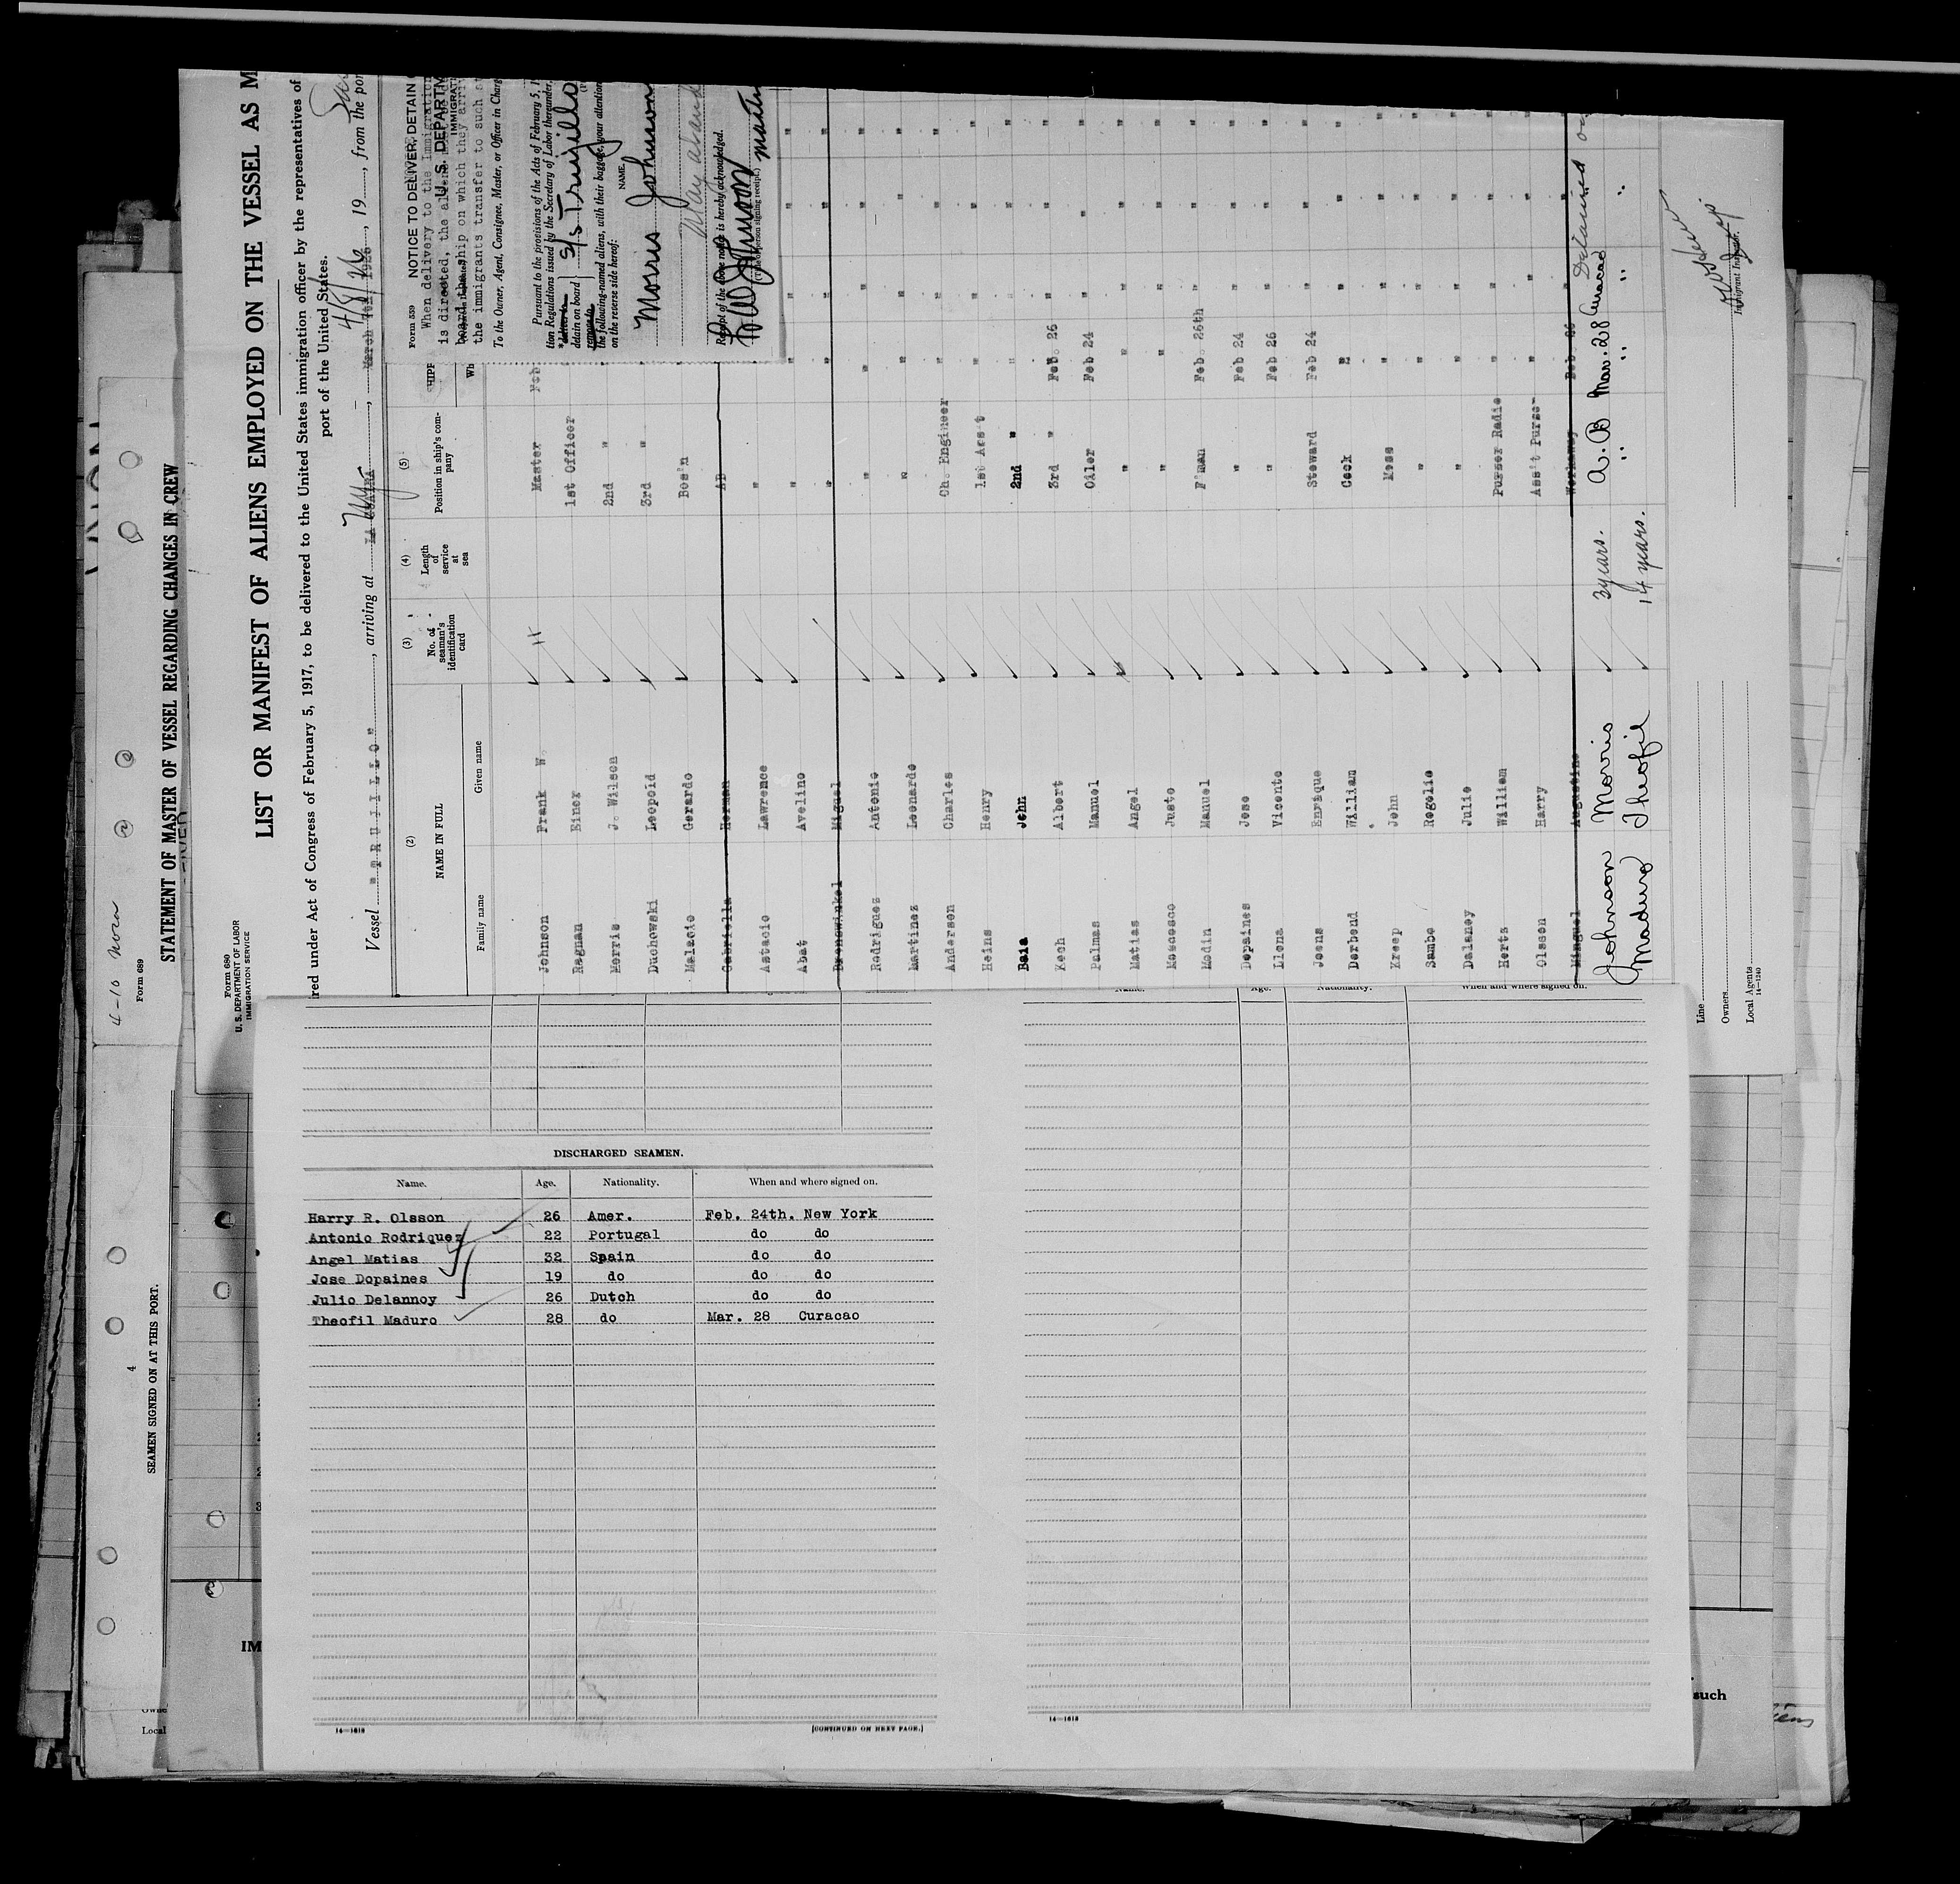 4-10 Noon
Form 689
STATEMENT OF MASTER OF VESSEL REGARDING CHANGES IN CREW
4
SEAMEN SIGNED ON AT THIS PORT.
Form 680
U. S. DEPARTMENT OF LABOR
IMMIGRATION SERVICE
LIST OR MANIFEST OF ALIENS EMPLOYED ON THE VESSEL AS M
ired under Act of Congress of February 5, 1917, to be delivered to the United States immigration officer by the representatives of
port of the United States.
Vessel "TRUJILLO", arriving at LA GUAIRA, March 7th 1926, 19, from the por
NY 4/8/26
(2) (3) (4) (5)
NAME IN FULL
Family name Given name
No. of seaman's identification card
Length of service at sea
Position in ship's company
SHIPP
Wh
Johnson Frank W. Master Feb
Ragnan Einer 1st Officer
Morris J. Wilson 2nd "
Duchowski Leopold 3rd "
Malacio Gerardo Bos'n
Gabriella Herman AB
Astacio Lawrence "
Abat Avelino "
Bronowinkel Miguel "
Rodriguez Antonio " "
Martinez Leonardo " "
Anderson Charles Ch. Engineer "
Heins Henry 1st Ass't "
Baia John 2nd " "
Kech Albert 3rd " Feb. 26
Palmas Manuel Oiler Feb 24
Matias Angel " "
Moscosco Justo " "
Modin Manuel F'man Feb. 26th
Dopaines Jose " Feb 24
Llona Vicente " Feb 26
Joens Enrique Steward Feb 24
Dorbend William Cook "
Kreep John Mess "
Sambo Rogelio " "
Dalaney Julio " "
Hertz William Purser Radio "
Olsson Harry Ass't Purser "
Minguel Augustine Workaway Feb. 26
Johnson Morris 3 years. A.B Mar. 28 Curacao Detained
Maduro Theofil 14 years. " " " "
Immigrant Inspector.
Line
Owners
Local Agents
14—1240
Form 559 NOTICE TO DELIVER, DETAIN
When delivery to the Immigration
is directed, the aliens
board the ship on which they arriv
the immigrants transfer to such s
U. S. DEPARTM
IMMIGRATI
To the Owner, Agent, Consignee, Master, or Officer in Charg
Pursuant to the provisions of the Acts of February 5, 1
tion Regulations issued by the Secretary of Labor thereunder,
detain on board S/S Trujillo
the following-named aliens, with their baggage, your attention
on the reverse side hereof:
NAME.
Morris Johnson
Receipt of the above notice is hereby acknowledged.
FW Johnson master
(Title of person signing receipt.)
DISCHARGED SEAMEN.
Name. Age. Nationality. When and where signed on.
Harry R. Olsson 26 Amer. Feb. 24th. New York
Antonio Rodriquez 22 Portugal do do
Angel Matias 32 Spain do do
Jose Dopaines 19 do do do
Julio Delannoy 26 Dutch do do
Theofil Maduro 28 do Mar. 28 Curacao
14—1613 [CONTINUED ON NEXT PAGE.]
Name. Age. Nationality. When and where signed on.
14—1613
Owne
Local
IM
such